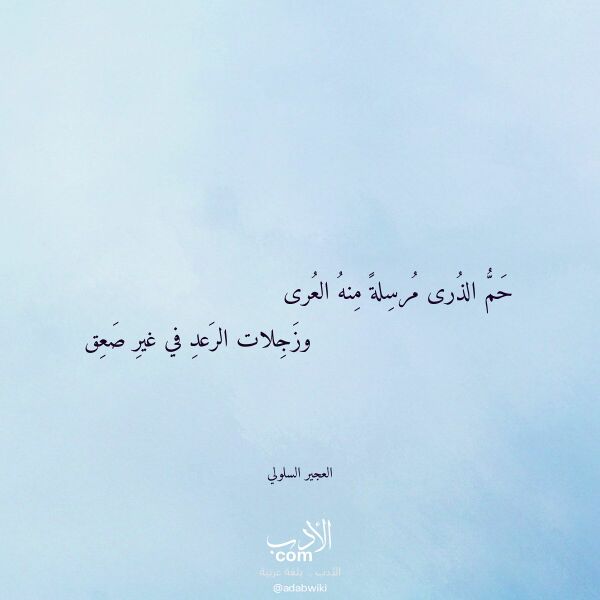 حَمُّ الذُرى مُرسِلةً مِنهُ العُرى
وزَجِلات الرَعدِ في غيرِ صَعِق
العجير السلولي
الأدب
com
الأدب .. بلغة عربية
@adabwiki